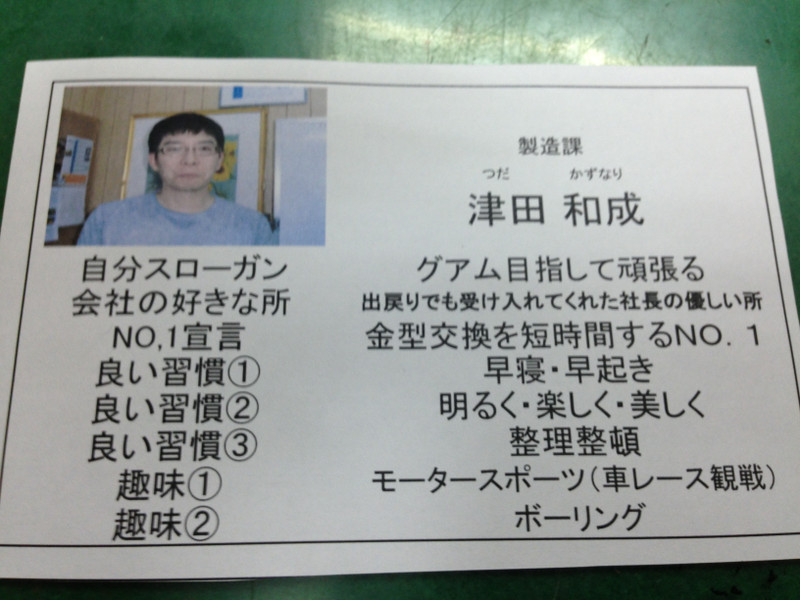 製造課
つだ かずなり
津田 和成
自分スローガン グアム目指して頑張る
会社の好きな所 出戻りでも受け入れてくれた社長の優しい所
NO,1宣言 金型交換を短時間するNO．1
良い習慣① 早寝・早起き
良い習慣② 明るく・楽しく・美しく
良い習慣③ 整理整頓
趣味① モータースポーツ（車レース観戦）
趣味② ボーリング